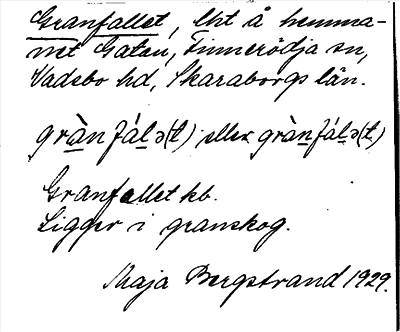 Granfallet, lht å hemma-
net Gatan, Finnerödja sn,
Vadsbo hd, Skaraborgs län.
gràn fál ə(t) eller gràn fál ə(t)
Granfallet kb.
Ligger i granskog.
Maja Bergstrand 1929.